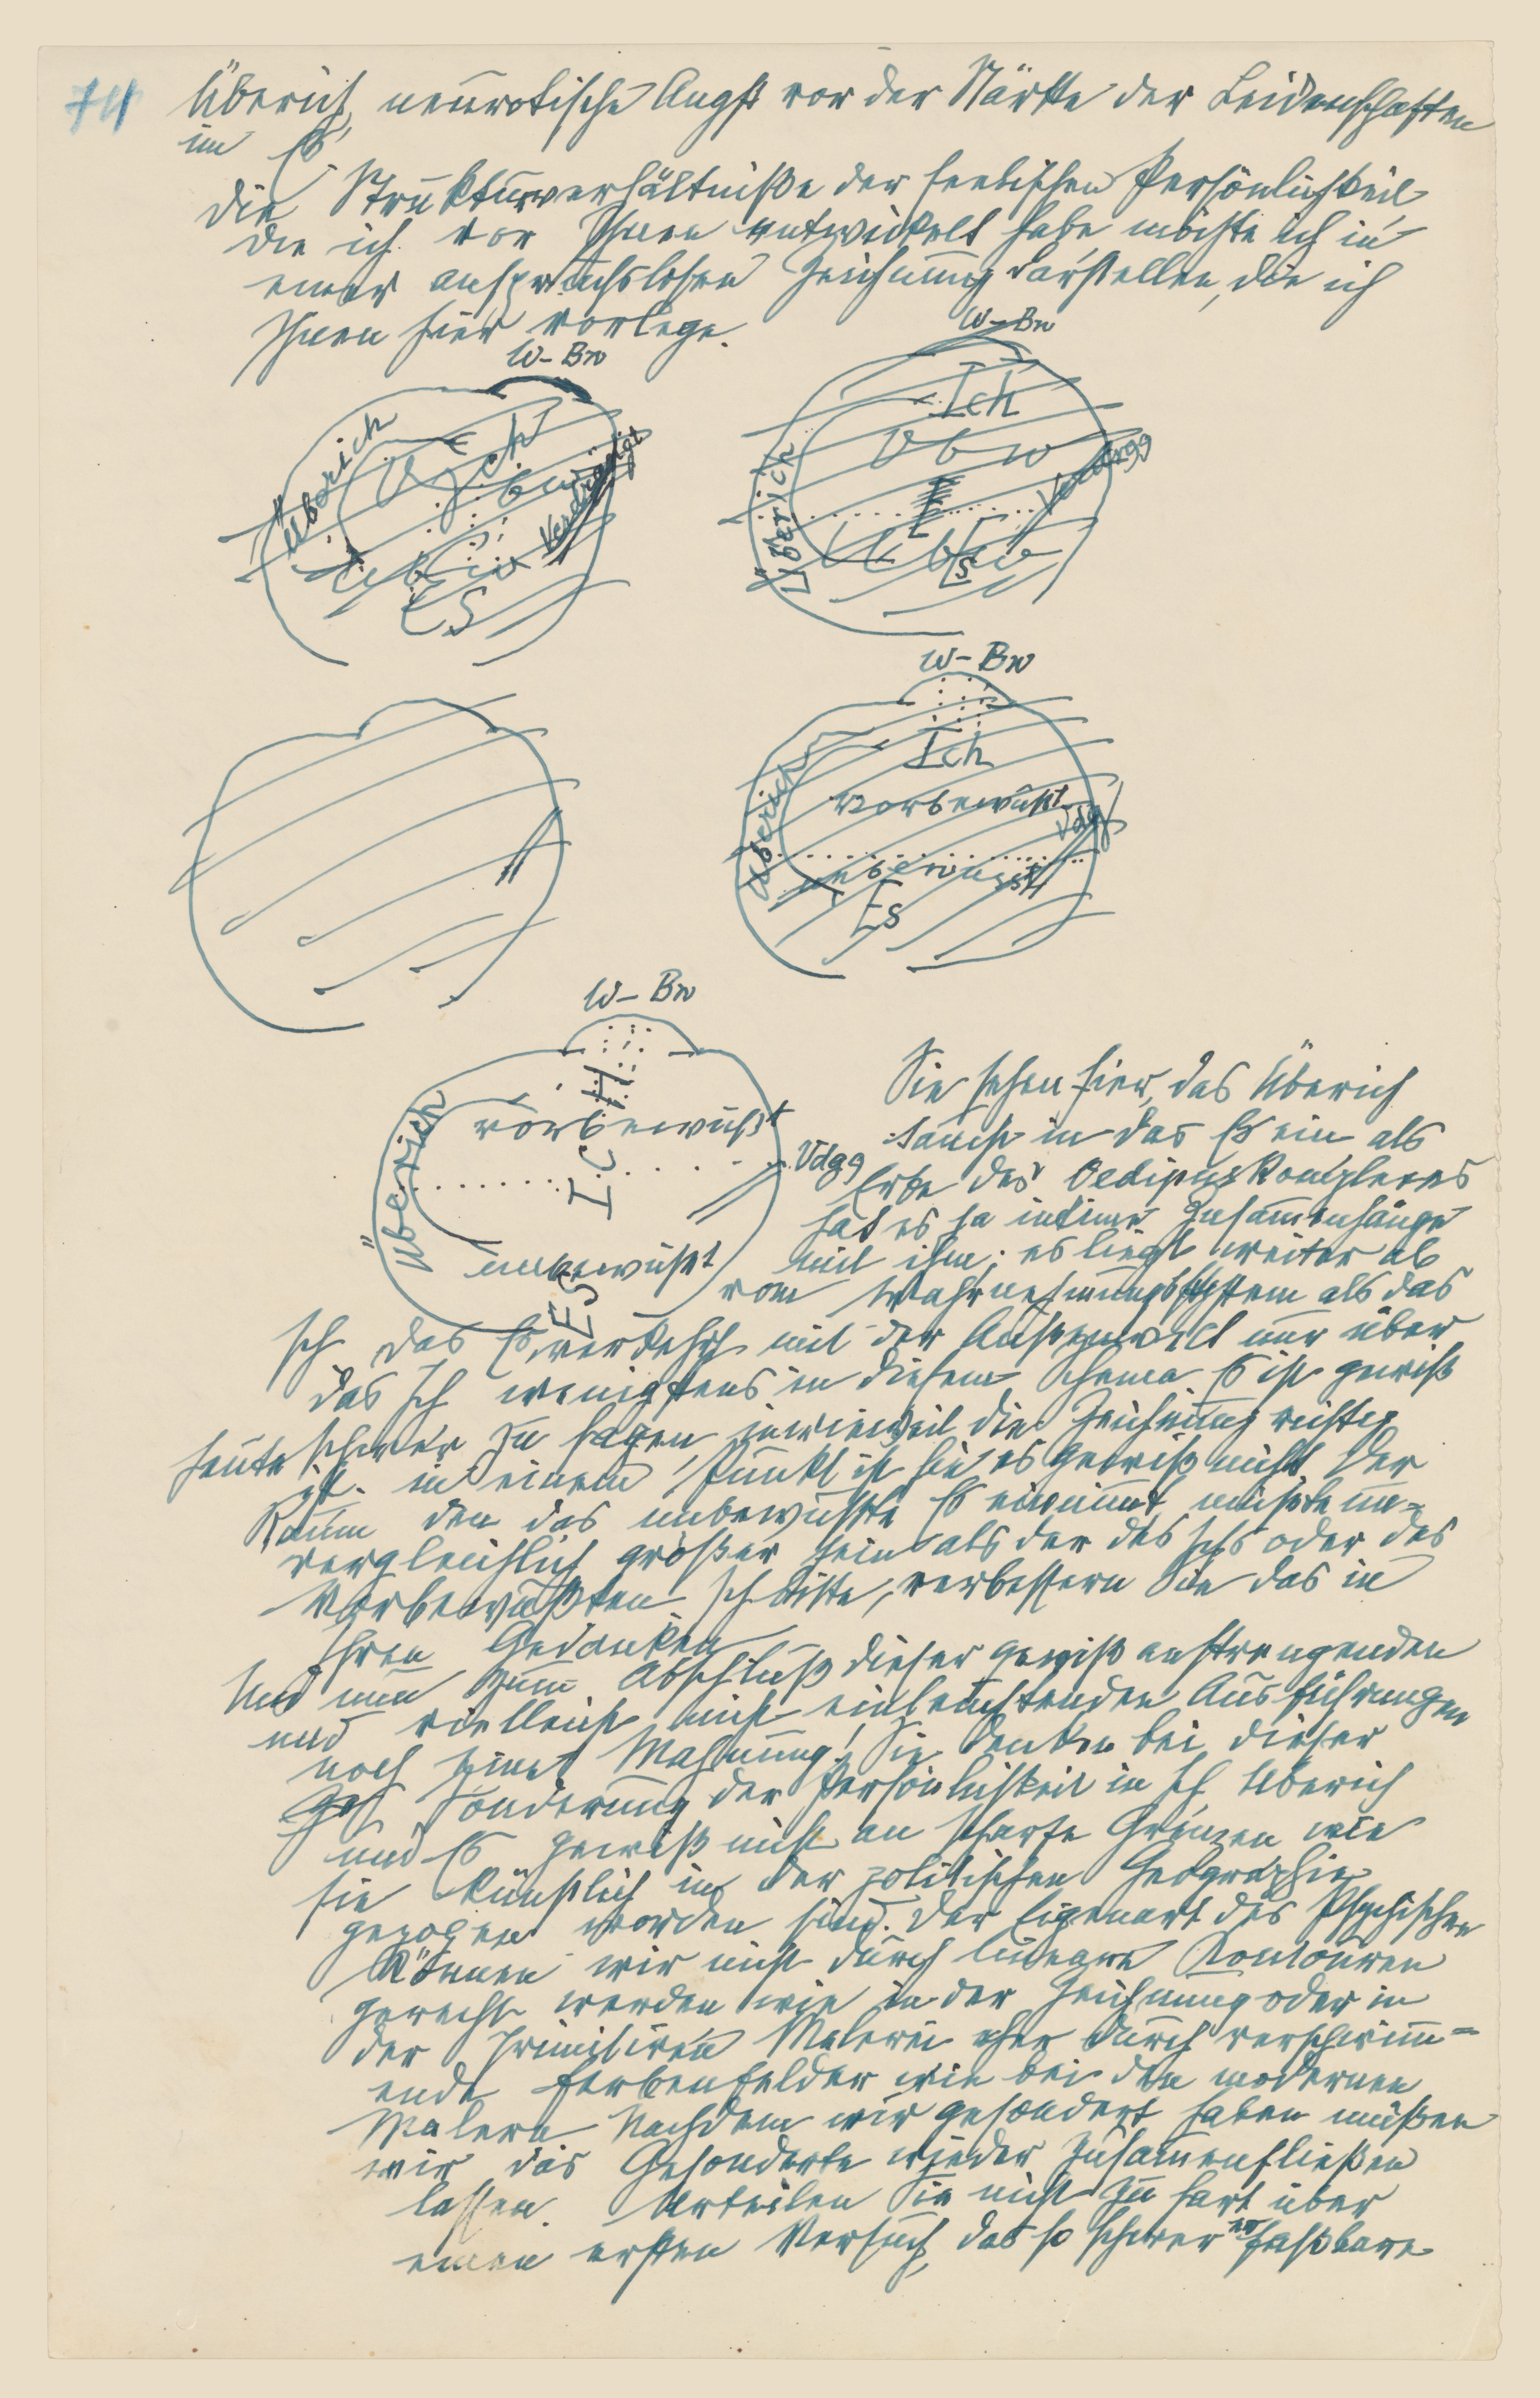 74
Überich, neurotische Angst vor der Stärke der Leidenschaften
im Es.
Die Strukturverhältniße der seelischen Persönlichkeit
die ich vor Ihnen entwickelt habe möchte ich in
einer anspruchslosen Zeichnung darstellen, die ich
Ihnen hier vorlege.
W-Bw
Überich
Ich
Vbw
Verdrängt
Ubw
Es
W-Bw
Ich
Vbw
Überich
Verdrgg
Ubw
Es
W-Bw
Ich
Überich
vorbewußt
Vdgg
unbewußt
Es
W-Bw
Überich
vorbewußt
ICH
Vdgg
unbewußt
ES
Sie sehen hier, das Überich
taucht in das Es ein als
Erbe des Oedipuskomplexes
hat es ja intime Zusammenhänge
mit ihm; es liegt weiter ab
vom Wahrnehmungssystem als das
Ich Das Es verkehrt mit der Außenwelt nur über
das Ich wenigstens in diesem Schema Es ist gewiß
heute schwer zu sagen inwieweit die Zeichnung richtig
ist. in einem Punkt ist sie es gewiß nicht. Der
Raum den das unbewußte Es einnimmt müßte un=
vergleichlich größer sein als der des Ichs oder des
Vorbewußten Ich bitte, verbessern Sie das in
Ihren Gedanken
Und nun zum Abschluß dieser gewiß anstrengenden
und vielleicht nicht einleuchtenden Ausführungen
noch eine Mahnung! Sie denken bei dieser
Sonderung der Persönlichkeit in Ich Überich
und Es gewiß nicht an scharfe Grenzen wie
sie künstlich in der politischen Geographie
gezogen worden sind. Der Eigenart des Psychischen
können wir nicht durch lineare Kontouren
gerecht werden wie in der Zeichnung oder in
der primitiven Malerei eher durch verschwimm=
ende Farbenfelder wie bei den modernen
Malern Nachdem wir gesondert haben müßen
wir das Gesonderte wieder zusammenfließen
lassen. Urteilen Sie nicht zu hart über
einen ersten Versuch, das so schwer erfaßbare